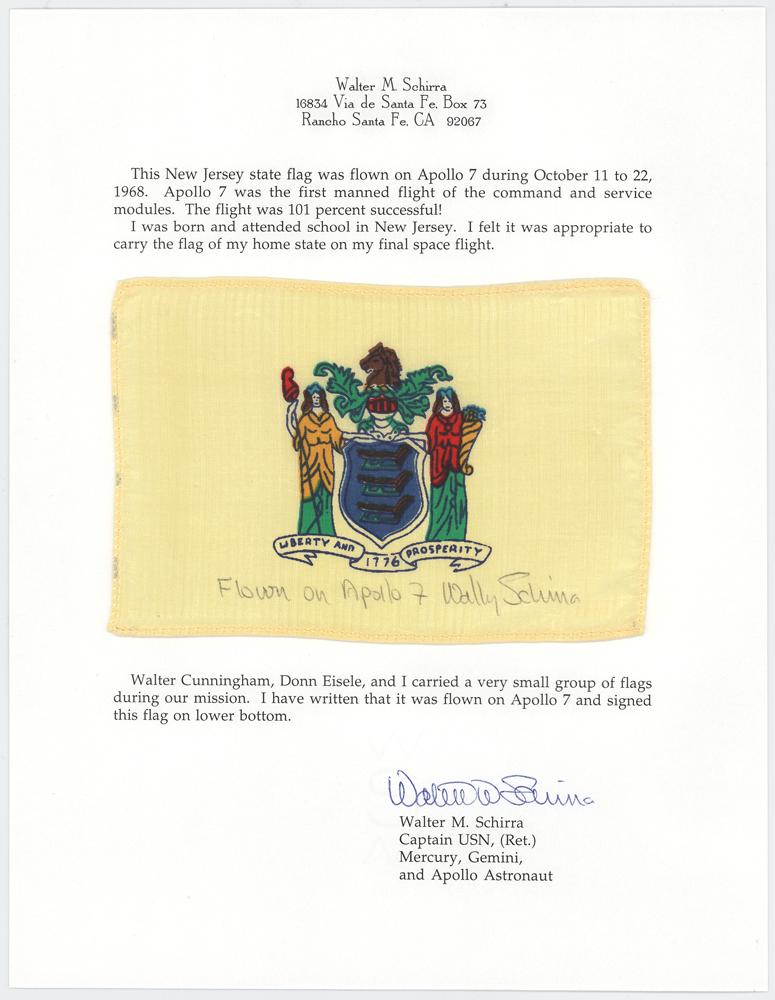 Walter M. Schirra
16834 Via de Santa Fe, Box 73
Rancho Santa Fe, CA 92067
This New Jersey state flag was flown on Apollo 7 during October 11 to 22,
1968. Apollo 7 was the first manned flight of the command and service
modules. The flight was 101 percent successful!
I was born and attended school in New Jersey. I felt it was appropriate to
carry the flag of my home state on my final space flight.
LIBERTY AND 1776 PROSPERITY
Flown on Apollo 7 Wally Schirra
Walter Cunningham, Donn Eisele, and I carried a very small group of flags
during our mission. I have written that it was flown on Apollo 7 and signed
this flag on lower bottom.
Walter M Schirra
Walter M. Schirra
Captain USN, (Ret.)
Mercury, Gemini,
and Apollo Astronaut